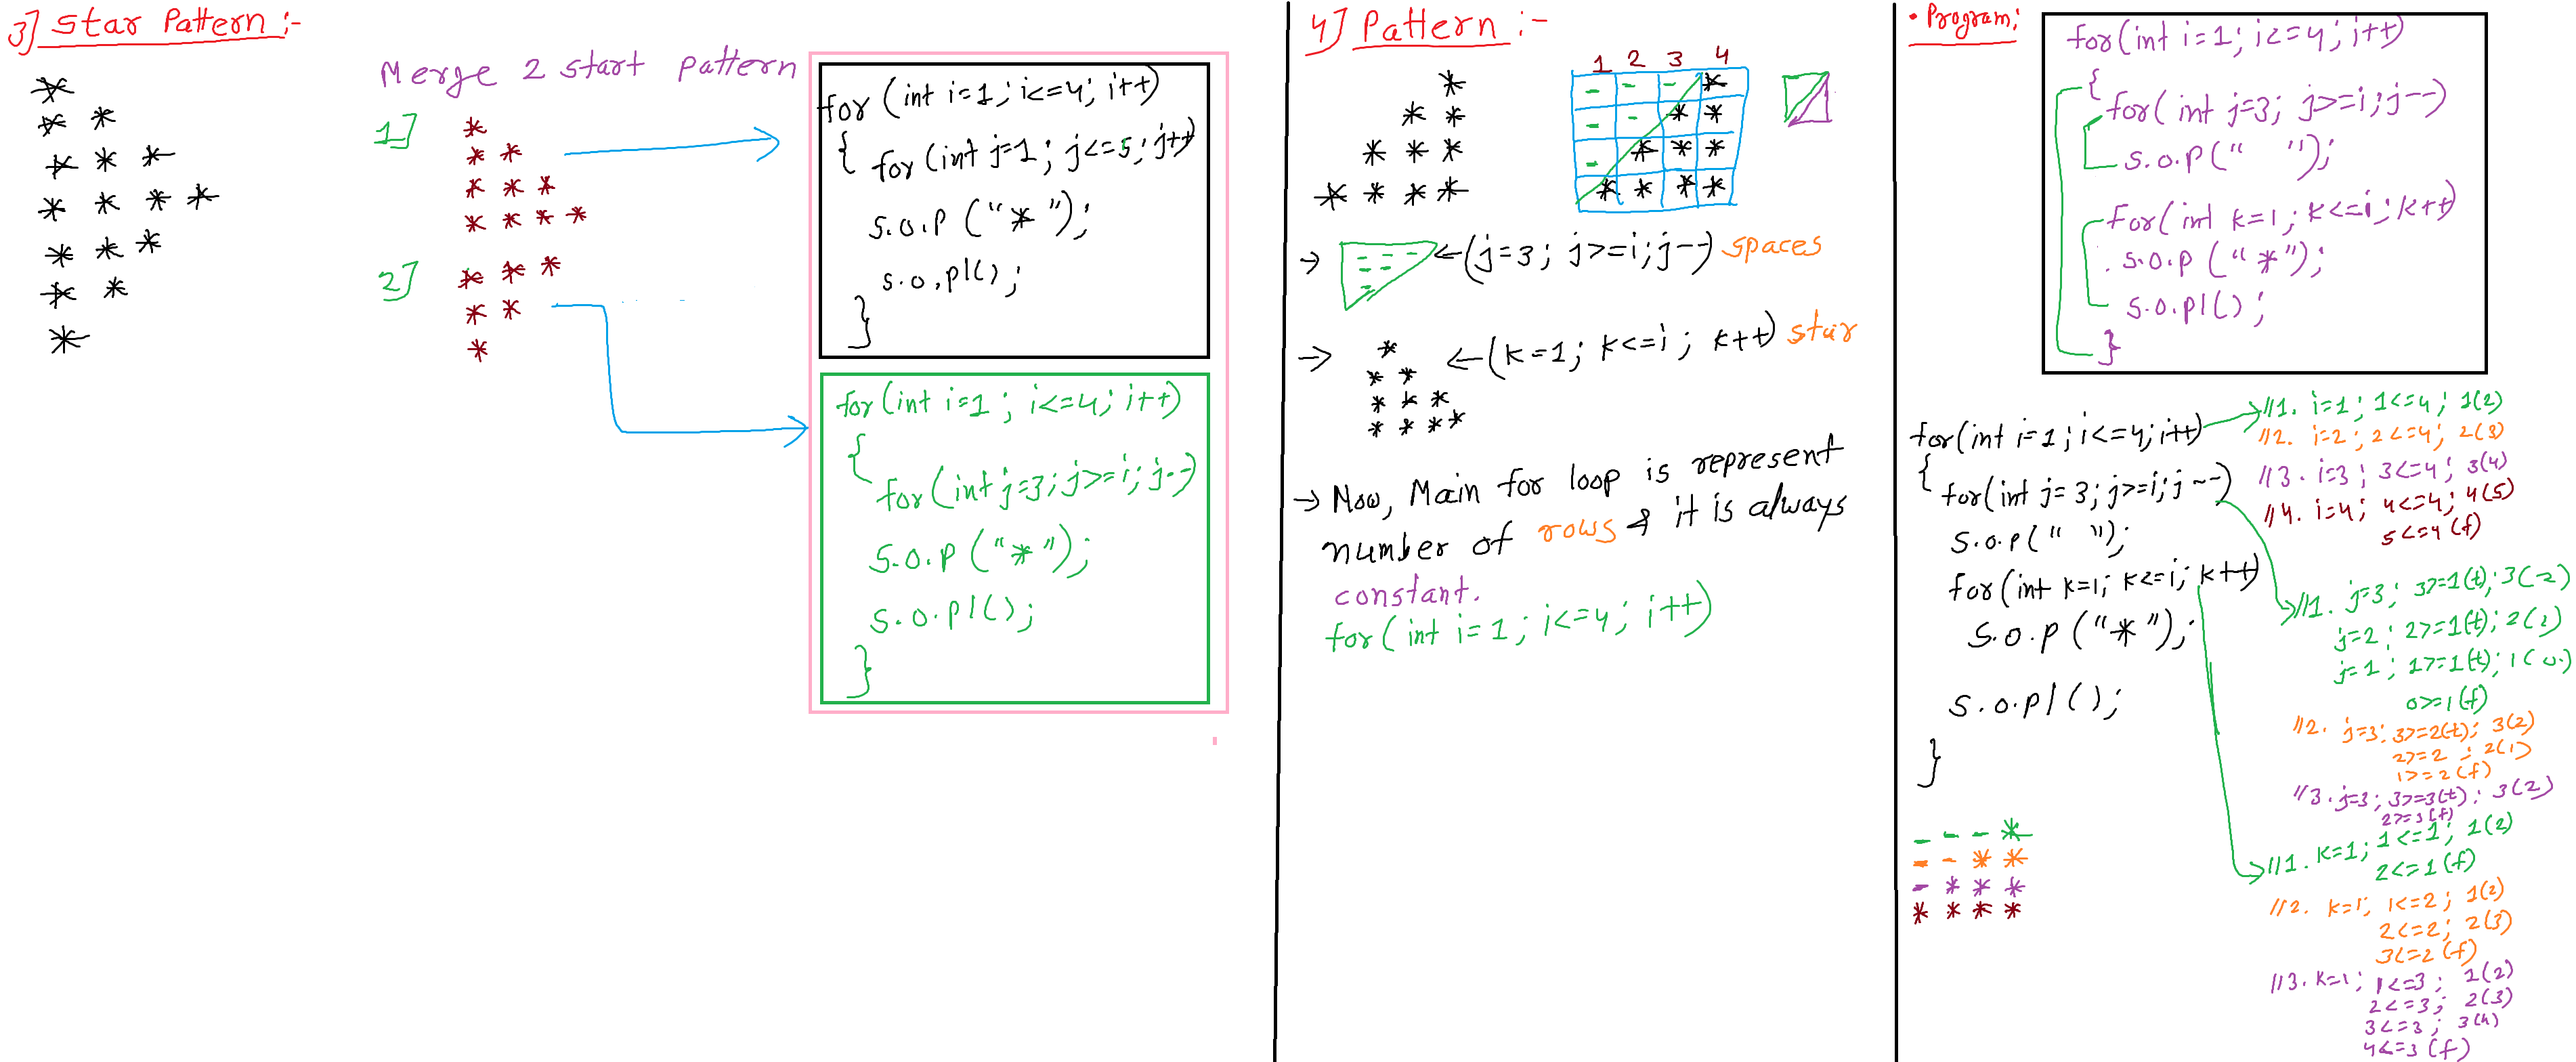 3] Star Pattern :-
*
* *
* * *
* * * *
* * *
* *
*
Merge 2 start pattern
1]
*
* *
* * *
* * * *
2]
* * *
* *
*
for (int i=1; i<=4; i++)
{ for (int j=1; j<=5; j++)
s.o.p ("*");
s.o.pl();
}
for (int i=1; i<=4; i++)
{
for (int j=3; j>=i; j--)
s.o.p ("*");
s.o.pl();
}
4] Pattern :-
*
* *
* * *
* * * *
1 2 3 4
- - - *
- - * *
- * * *
* * * *
→ - - - ←(j=3; j>=i; j--) spaces
- -
-
→ * ←(k=1; k<=i; k++) star
* *
* * *
* * * *
→ Now, Main for loop is represent
number of rows & it is always
constant.
for (int i=1; i<=4; i++)
• Program:
for (int i=1; i<=4; i++)
{
for (int j=3; j>=i; j--)
s.o.p (" ");
for (int k=1; k<=i; k++)
s.o.p ("*");
s.o.pl();
}
for (int i=1; i<=4; i++)
{
for (int j=3; j>=i; j--)
s.o.p (" ");
for (int k=1; k<=i; k++)
s.o.p ("*");
s.o.pl();
}
- - - *
- - * *
- * * *
* * * *
//1. i=1; 1<=4; 1(2)
//2. i=2; 2<=4; 2(3)
//3. i=3; 3<=4; 3(4)
//4. i=4; 4<=4; 4(5)
5<=4 (f)
//1. j=3; 3>=1(t); 3(2)
j=2; 2>=1(t); 2(1)
j=1; 1>=1(t); 1(0)
0>=1(f)
//2. j=3; 3>=2(t); 3(2)
2>=2; 2(1)
1>=2(f)
//3. j=3; 3>=3(t); 3(2)
2>=3(f)
//1. k=1; 1<=1; 1(2)
2<=1(f)
//2. k=1; 1<=2; 1(2)
2<=2; 2(3)
3<=2(f)
//3. k=1; 1<=3; 1(2)
2<=3; 2(3)
3<=3; 3(4)
4<=3(f)